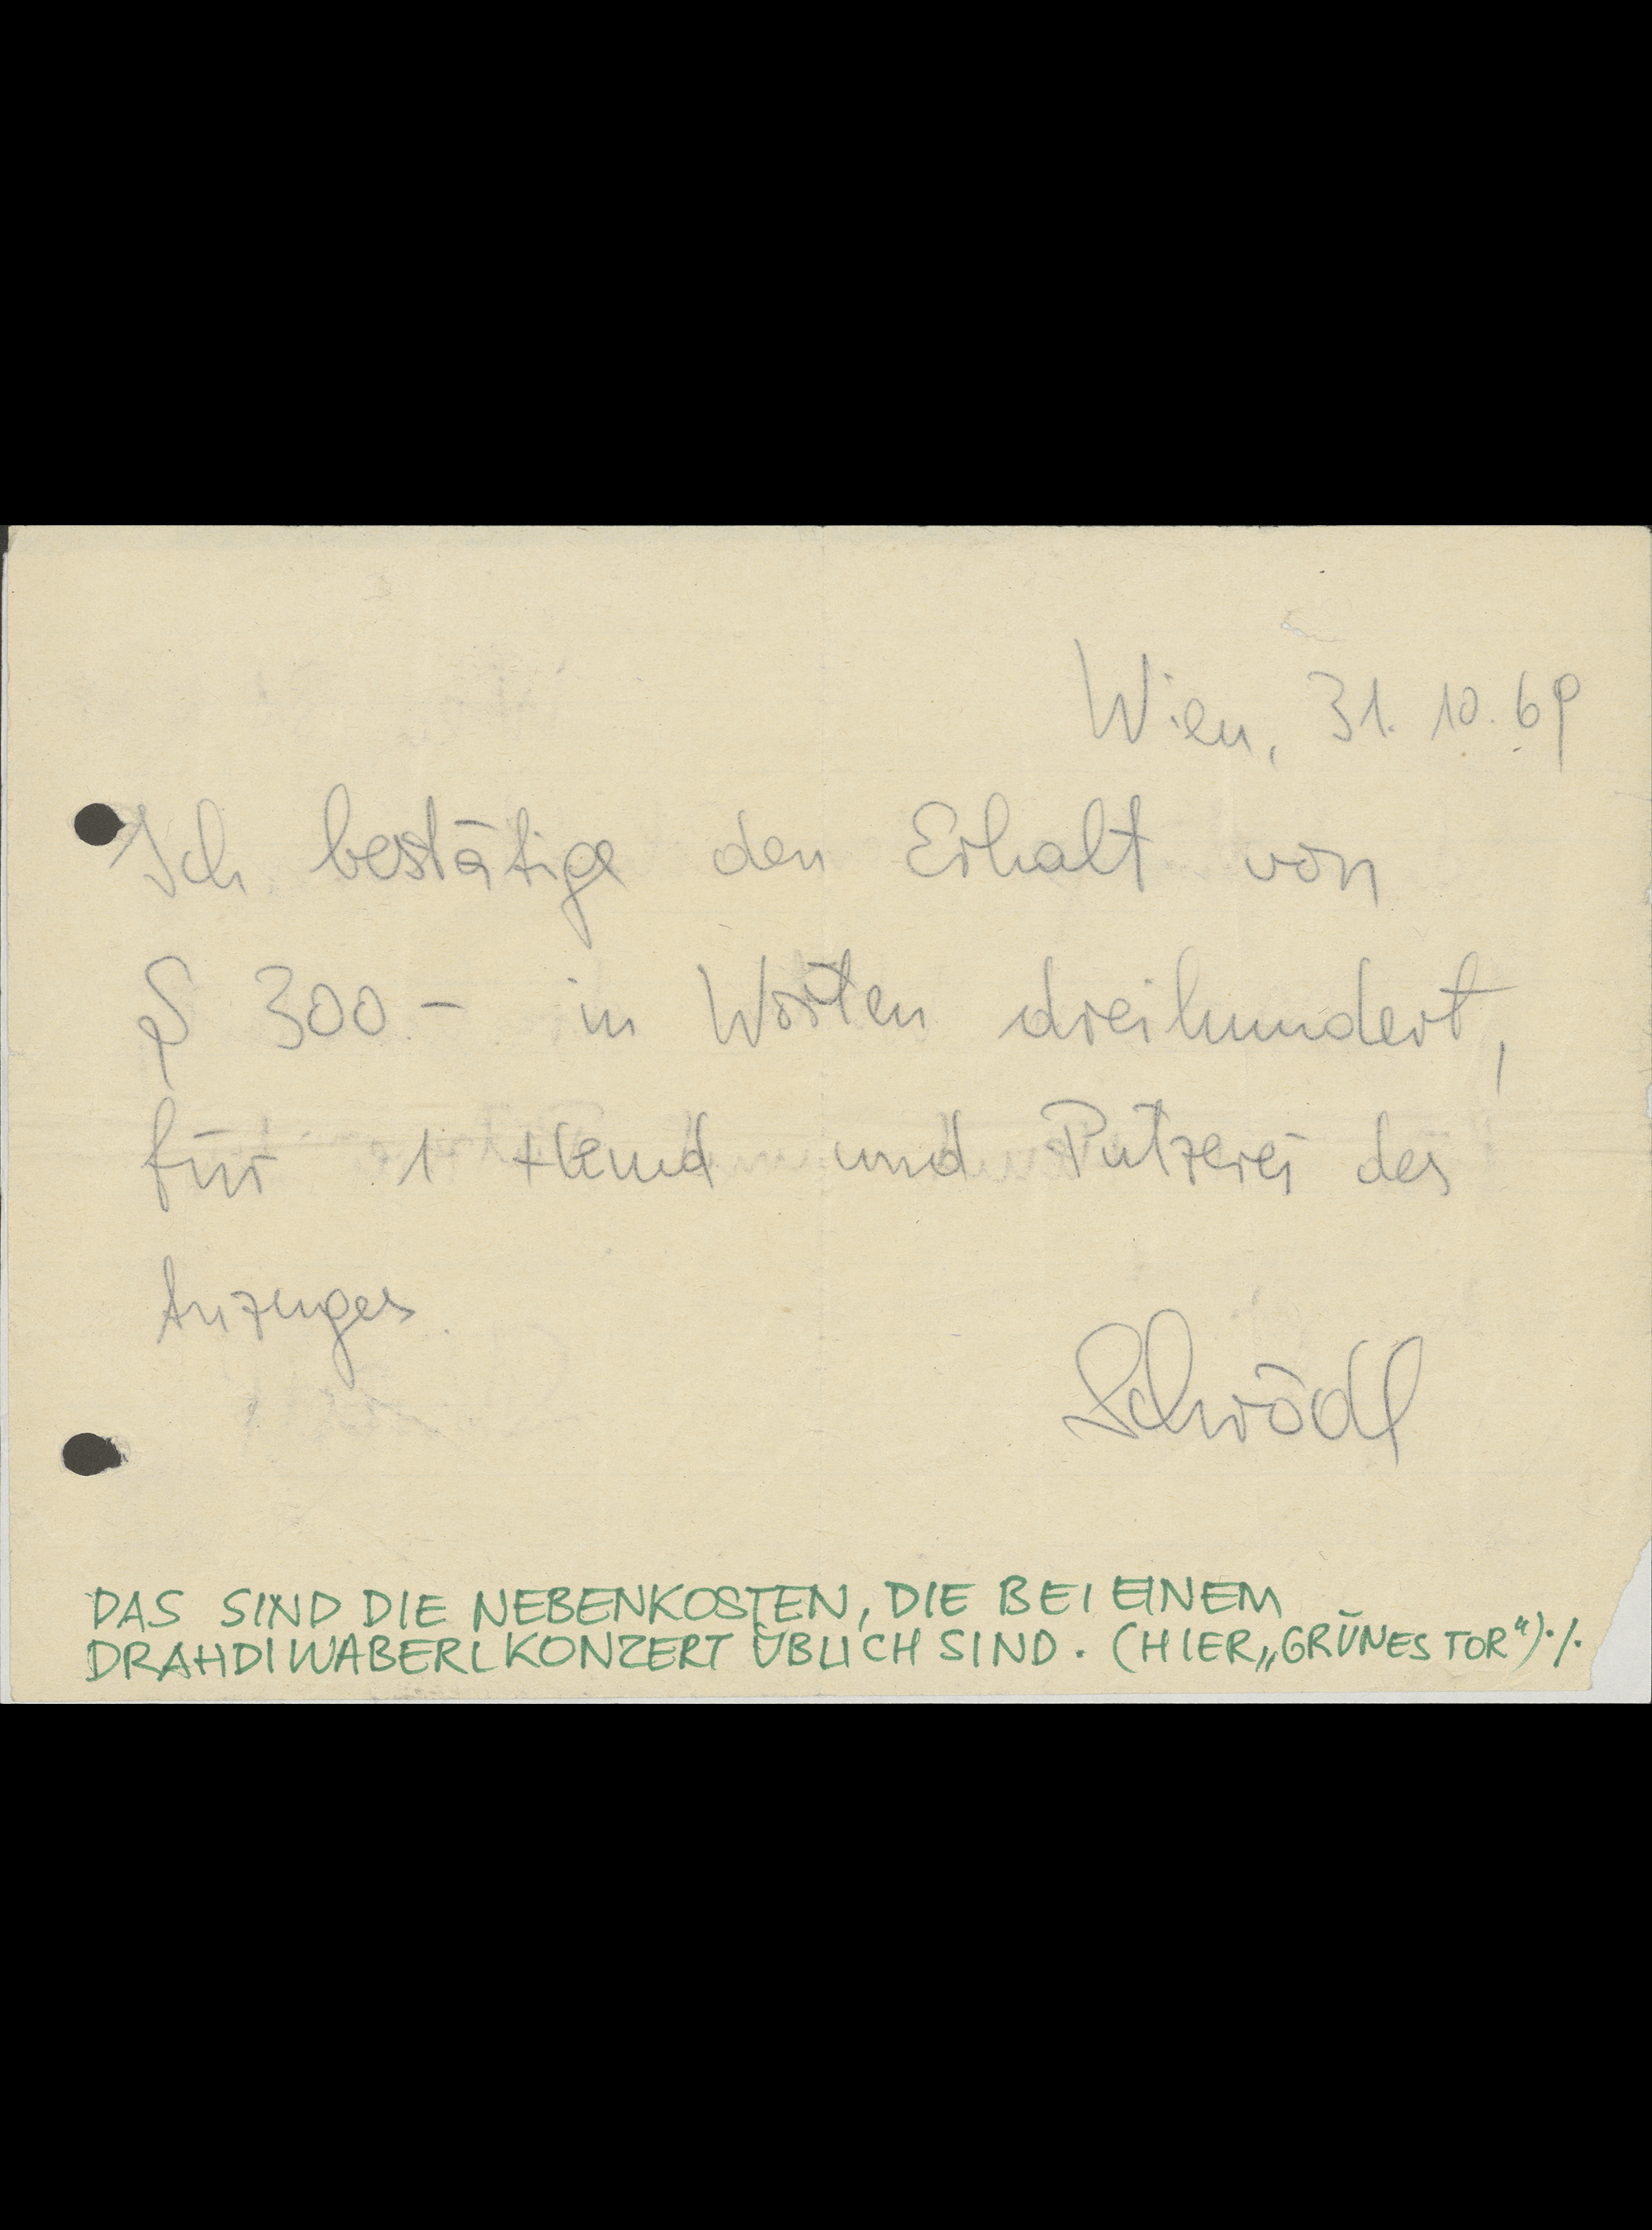 Wien, 31. 10. 69
Ich bestätige den Erhalt von
S 300.- in Worten dreihundert,
für 1 Hemd und Putzerei des
Anzuges.
Schrödl
DAS SIND DIE NEBENKOSTEN, DIE BEI EINEM
DRAHDIWABERLKONZERT ÜBLICH SIND. (HIER „GRÜNES TOR“) ·/·